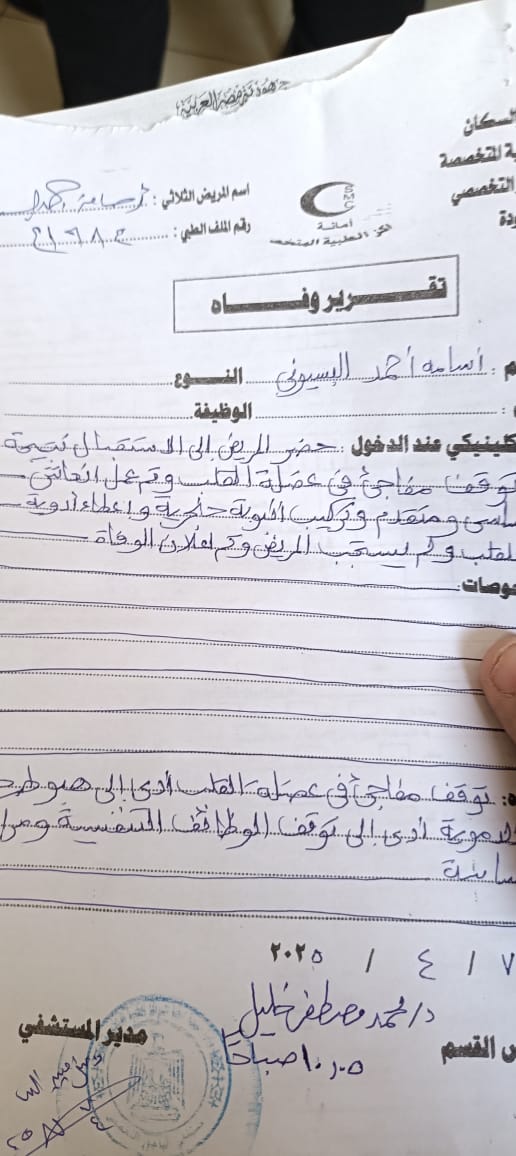 جمهورية مصر العربية
السكان
ة المتخصصة
التخصصي
ودة
SMC
أمانة
المراكز الطبية المتخصصة
اسم المريض الثلاثي : أسامة أحمد
رقم الملف الطبي :
تقرير وفاه
م : أسامه أحمد البسيوني النوع
: الوظيفة
كلينيكي عند الدخول : حضر المريض إلى الاستقبال نتيجة
توقف مفاجئ في عضلة القلب وتم عمل انعاش
ساسي ومتقدم وتركيب انبوبة حنجرية واعطاء أدوية
للقلب ولم يستجب المريض وتم اعلان الوفاة
حوصات :
ه : توقف مفاجئ في عضلة القلب أدى إلى هبوط
الدموية أدى إلى توقف الوظائف التنفسية
٧ / ٤ / ٢٠٢٥
د/ محمد مصطفى خليل
س القسم
مدير المستشفي
١٠,٠٥ صباحا